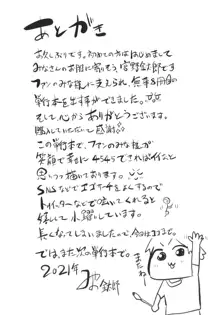 あとがき
お久しぶりです。初めての方ははじめまして
みなさんのお股に寄りそう宮野金太郎です
ファンのみな様に支えられ、無事8冊目の
単行本を出す事ができました。
そして心からありがとうございます。
購入していただいて感謝♂
この単行本で、ファンのみな様が
笑顔で幸せに4545できればイイなと
思いつつ描いております。
SNSなどでエゴサーチをよくするので
トゥイッターなどで呟いてくれると
嬉しくて小躍りしています。
長くなってしまいましたので、今回はココまで。
では、また次の単行本で。
2021年
またねー